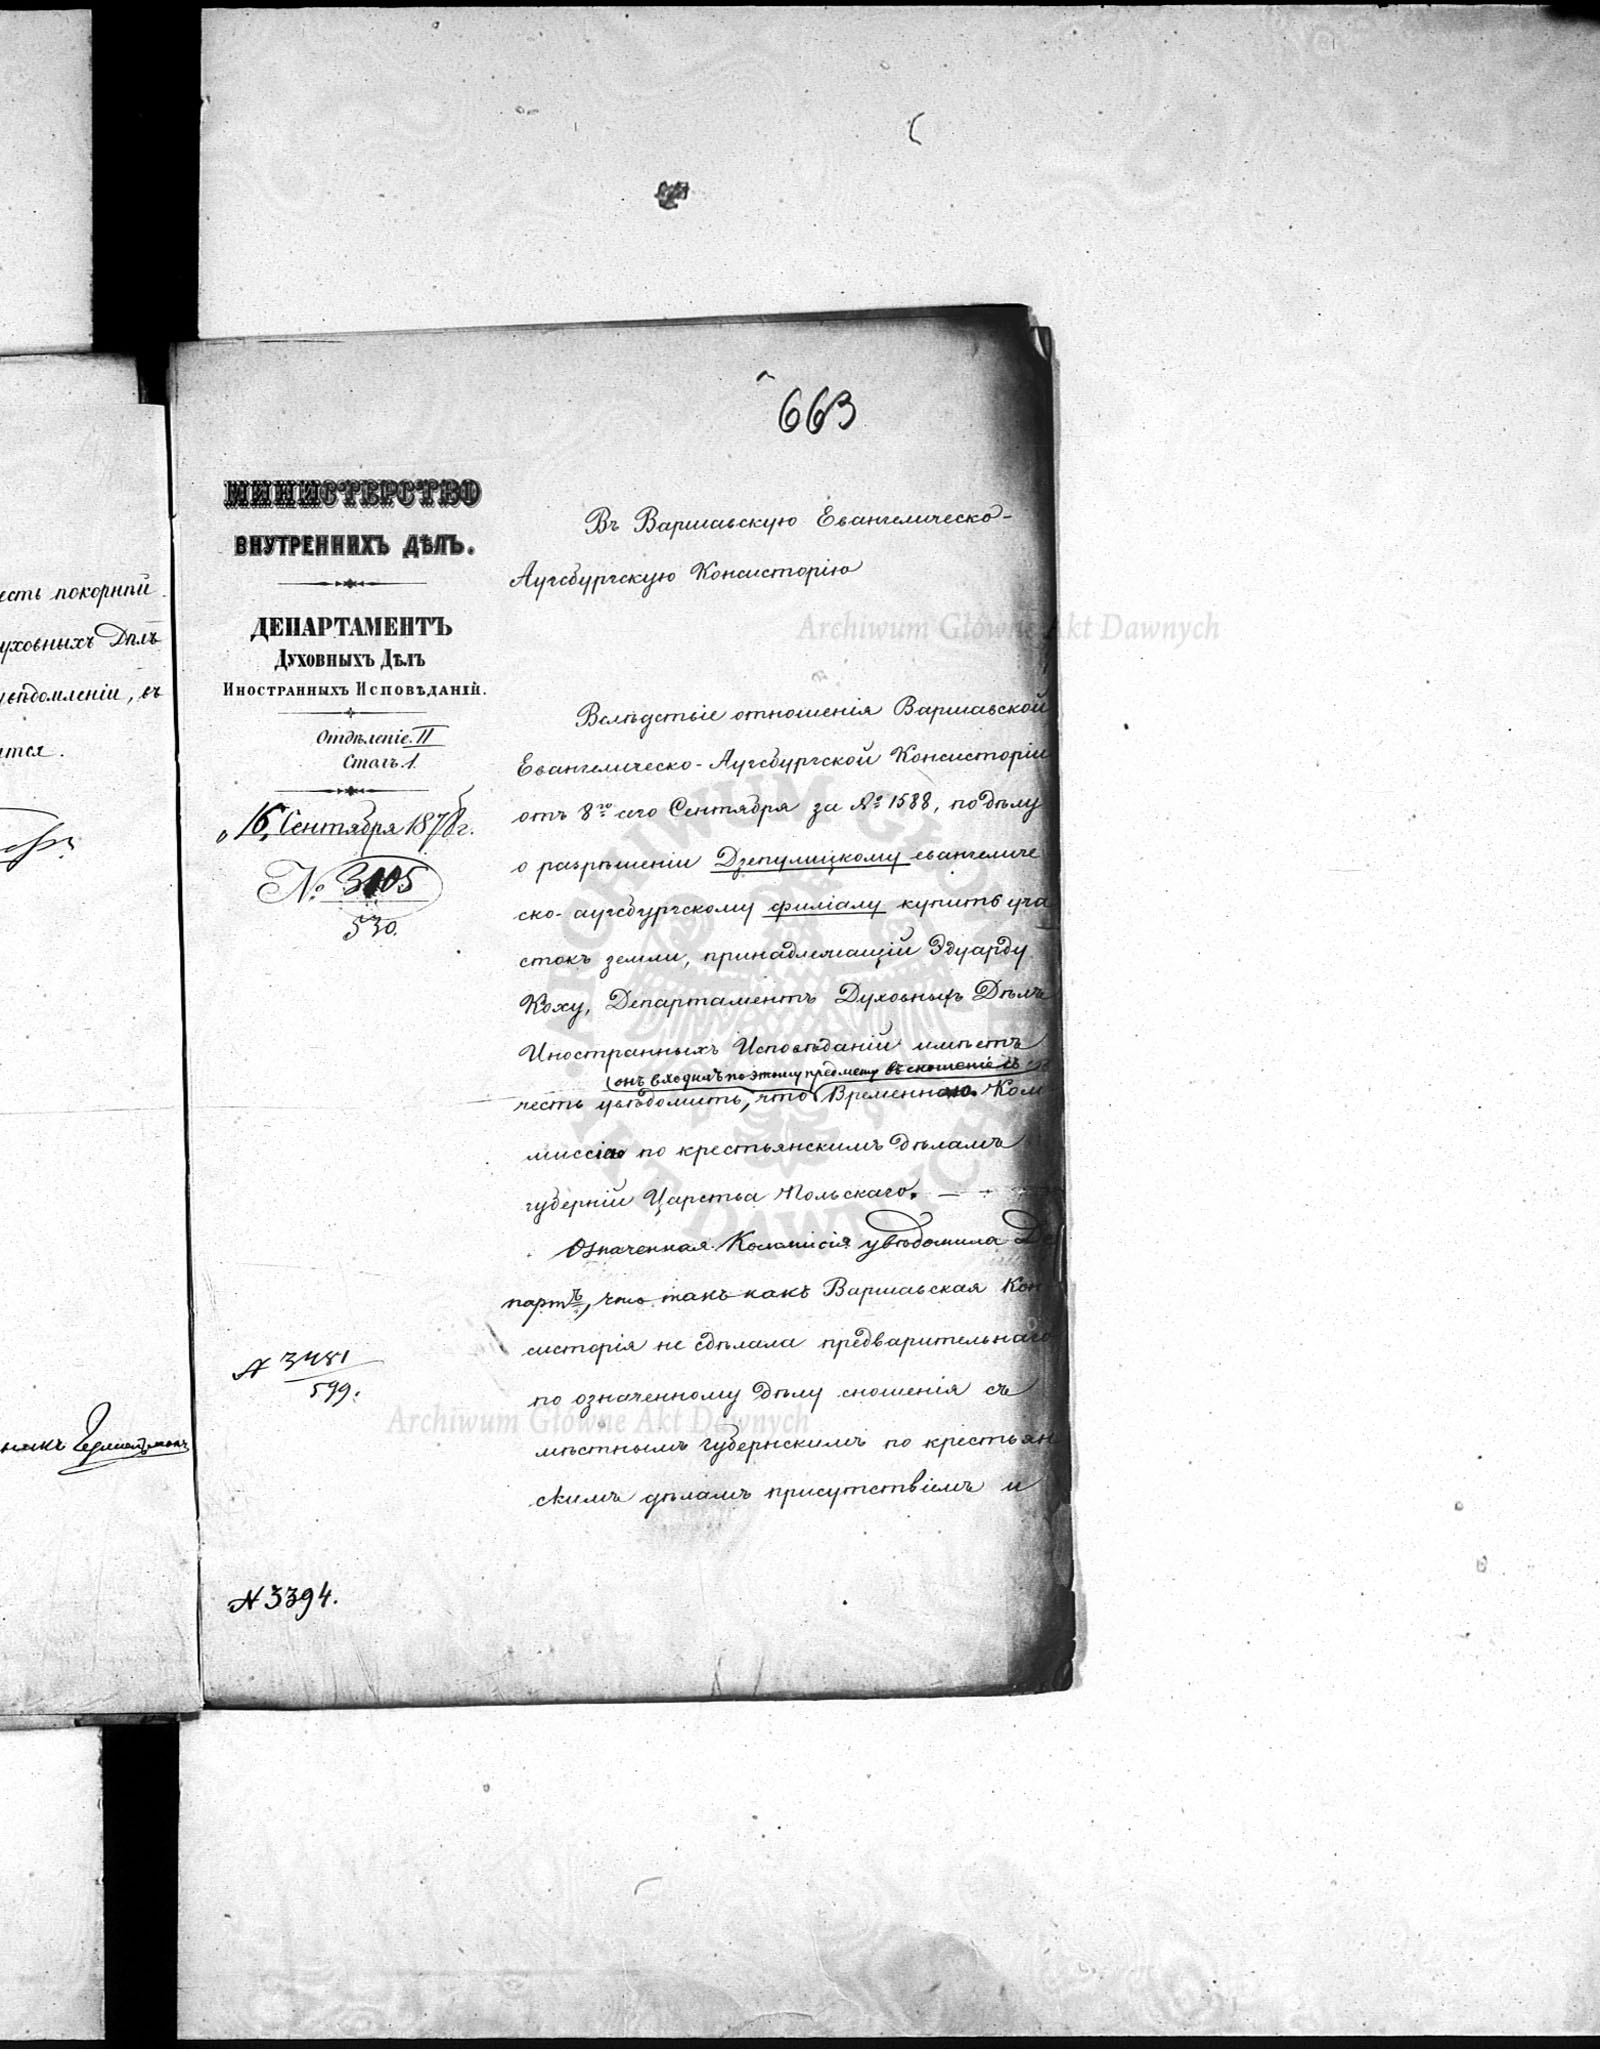 есть покорнѣй
уховныхъ Дѣлъ
увѣдомленіи, въ
ится.
663
МИНИСТЕРСТВО
ВНУТРЕННИХЪ ДѢЛЪ.
ДЕПАРТАМЕНТЪ
ДУХОВНЫХЪ ДѢЛЪ
ИНОСТРАННЫХЪ ИСПОВѢДАНІЙ.
Отдѣленіе II
Столъ 1.
16 Сентября 1878 г.
№ 3105
530.
№ 3481
599.
№ 3394.
Въ Варшавскую Евангелическо-
Аугсбургскую Консисторію
Вслѣдствіе отношенія Варшавской
Евангелическо-Аугсбургской Консисторіи
отъ 8го сего Сентября за № 1588, по дѣлу
о разрѣшеніи Дзепулицкому евангеличе
ско-аугсбургскому филіалу купить уча
стокъ земли, принадлежащій Эдуарду
Коху, Департаментъ Духовныхъ Дѣлъ
Иностранныхъ Исповѣданій имѣетъ
онъ входилъ по этому предмету въ сношеніе съ
честь увѣдомить, что Временною Ком
миссію по крестьянскимъ дѣламъ
губерній Царства Польскаго.
Означенная Коммисія увѣдомила Де
партъ, что такъ какъ Варшавская Кон
систорія не сдѣлала предварительнаго
по означенному дѣлу сношенія съ
мѣстнымъ губернскимъ по крестьян
скимъ дѣламъ присутствіемъ и
Archiwum Główne Akt Dawnych
Archiwum Główne Akt Dawnych